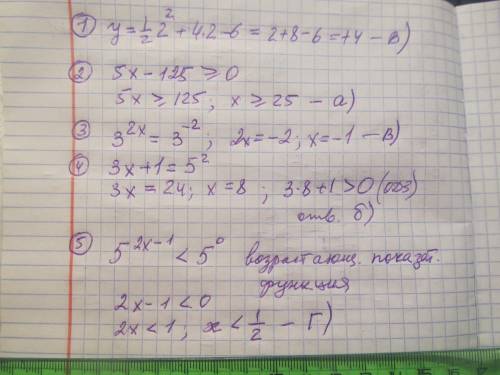 ① y = 1/2 2² + 4.2 - 6 = 2 + 8 - 6 = +4 - в)
② 5x - 125 ≥ 0
5x ≥ 125; x ≥ 25 - а)
③ 3^2x = 3^-2; 2x = -2; x = -1 - в)
④ 3x + 1 = 5²
3x = 24; x = 8; 3·8 + 1 > 0 (одз)
отв. б)
⑤ 5^2x-1 < 5^0 возрастающ. показат.
функция
2x - 1 < 0
2x < 1; x < 1/2 - Г)